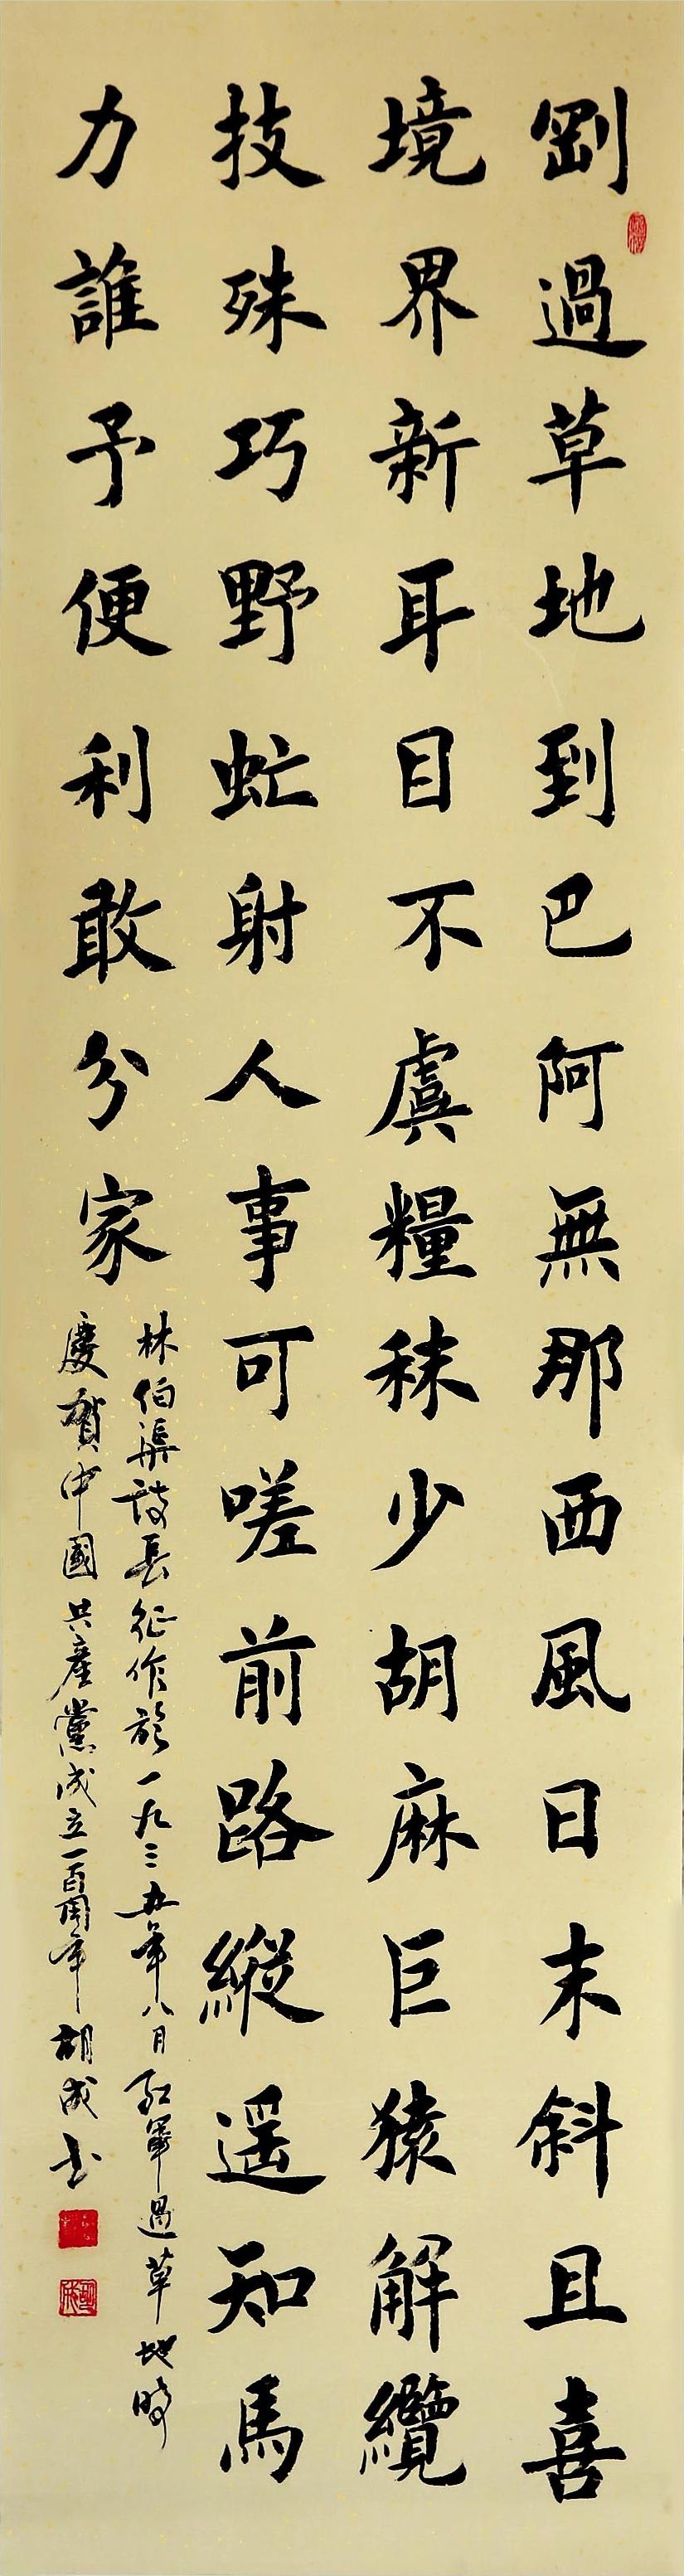 剛過草地到巴阿無那西風日未斜且喜
境界新耳目不虞糧秣少胡麻巨猿解纜
技殊巧野虻射人事可嗟前路縱遥知馬
力誰予便利敢分家
林伯渠詩長征作於一九三五年八月紅軍過草地時
慶賀中國共產黨成立一百周年胡成书